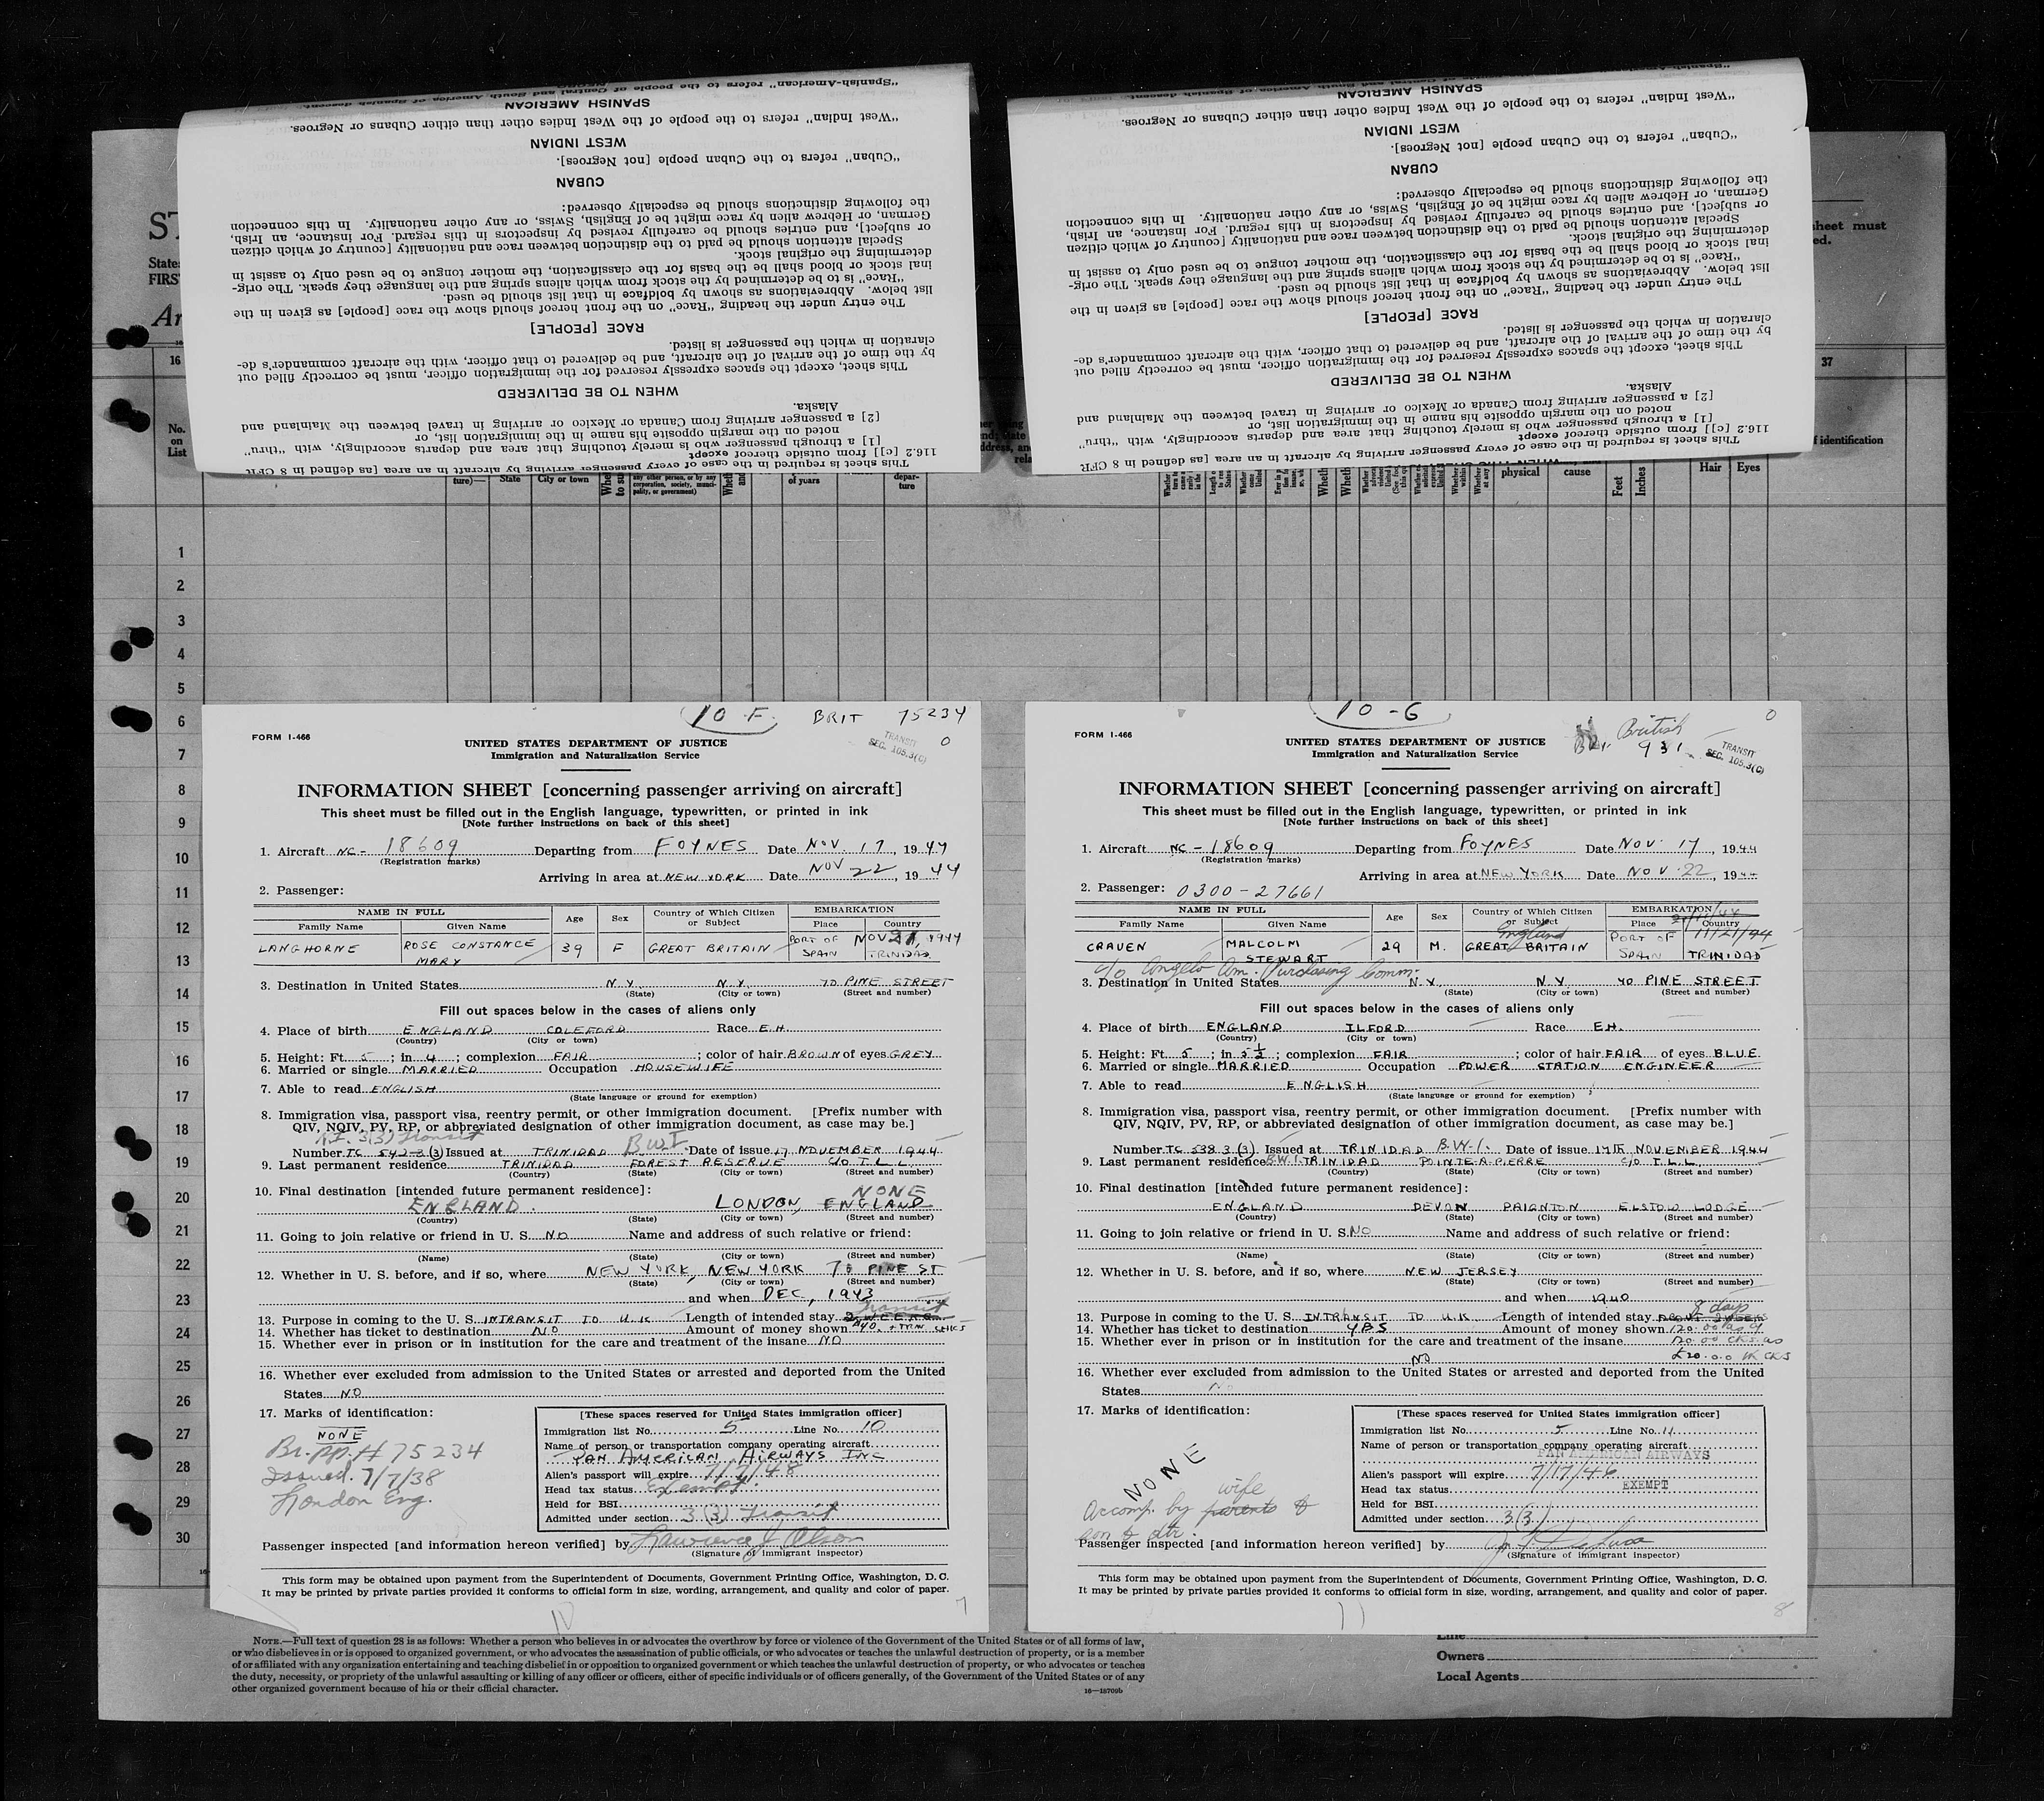 "Spanish-American" refers to the people of Central and South America of Spanish descent.
SPANISH AMERICAN
"West Indian" refers to the people of the West Indies other than either Cubans or Negroes.
WEST INDIAN
"Cuban" refers to the Cuban people [not Negroes].
CUBAN
the following distinctions should be especially observed:
German, or Hebrew alien by race might be of English, Swiss, or any other nationality. In this connection
or subject], and entries should be carefully revised by inspectors in this regard. For instance, an Irish,
Special attention should be paid to the distinction between race and nationality [country of which citizen
determining the original stock.
inal stock or blood shall be the basis for the classification, the mother tongue to be used only to assist in
"Race" is to be determined by the stock from which aliens spring and the language they speak. The orig-
list below. Abbreviations as shown by boldface in that list should be used.
The entry under the heading "Race" on the front hereof should show the race [people] as given in the
RACE [PEOPLE]
claration in which the passenger is listed.
by the time of the arrival of the aircraft, and be delivered to that officer, with the aircraft commander's de-
This sheet, except the spaces expressly reserved for the immigration officer, must be correctly filled out
WHEN TO BE DELIVERED
Alaska.
[2] a passenger arriving from Canada or Mexico or arriving in travel between the Mainland and
noted on the margin opposite his name in the immigration list, or
[1] a through passenger who is merely touching that area and departs accordingly, with "thru"
116.2 [c]] from outside thereof except
This sheet is required in the case of every passenger arriving by aircraft in an area [as defined in 8 CFR
"West Indian" refers to the people of the West Indies other than either Cubans or Negroes.
WEST INDIAN
"Cuban" refers to the Cuban people [not Negroes].
CUBAN
the following distinctions should be especially observed:
German, or Hebrew alien by race might be of English, Swiss, or any other nationality. In this connection
or subject], and entries should be carefully revised by inspectors in this regard. For instance, an Irish,
Special attention should be paid to the distinction between race and nationality [country of which citizen
determining the original stock.
inal stock or blood shall be the basis for the classification, the mother tongue to be used only to assist in
"Race" is to be determined by the stock from which aliens spring and the language they speak. The orig-
list below. Abbreviations as shown by boldface in that list should be used.
The entry under the heading "Race" on the front hereof should show the race [people] as given in the
RACE [PEOPLE]
claration in which the passenger is listed.
by the time of the arrival of the aircraft, and be delivered to that officer, with the aircraft commander's de-
This sheet, except the spaces expressly reserved for the immigration officer, must be correctly filled out
WHEN TO BE DELIVERED
Alaska.
[2] a passenger arriving from Canada or Mexico or arriving in travel between the Mainland and
noted on the margin opposite his name in the immigration list, or
[1] a through passenger who is merely touching that area and departs accordingly, with "thru"
116.2 [c]] from outside thereof except
This sheet is required in the case of every passenger arriving by aircraft in an area [as defined in 8 CFR
16
37
No. on List
State
City or town
of years
physical
cause
Feet
Inches
Hair
Eyes
1
2
3
4
5
6
7
8
9
10
11
12
13
14
15
16
17
18
19
20
21
22
23
24
25
26
27
28
29
30
10-F BRIT 75234
FORM I-466
TRANSIT
SEC. 105.3(C)
0
UNITED STATES DEPARTMENT OF JUSTICE
Immigration and Naturalization Service
INFORMATION SHEET [concerning passenger arriving on aircraft]
This sheet must be filled out in the English language, typewritten, or printed in ink
[Note further instructions on back of this sheet]
1. Aircraft NC-18609 Departing from FOYNES Date NOV. 17, 1944
(Registration marks)
Arriving in area at NEW YORK Date NOV 22, 1944
2. Passenger:
NAME IN FULL
Family Name Given Name Age Sex Country of Which Citizen or Subject EMBARKATION Place Country
LANGHORNE ROSE CONSTANCE MARY 39 F GREAT BRITAIN PORT OF SPAIN NOV 21, 1944 TRINIDAD
3. Destination in United States N.Y. N.Y. 70 PINE STREET
(State) (City or town) (Street and number)
Fill out spaces below in the cases of aliens only
4. Place of birth ENGLAND COLEFORD Race E.H.
(Country) (City or town)
5. Height: Ft. 5; in 4; complexion FAIR; color of hair BROWN of eyes GREY
6. Married or single MARRIED Occupation HOUSEWIFE
7. Able to read ENGLISH
(State language or ground for exemption)
8. Immigration visa, passport visa, reentry permit, or other immigration document. [Prefix number with
QIV, NQIV, PV, RP, or abbreviated designation of other immigration document, as case may be.]
3(3) Transit
Number TC 542-3(3) Issued at TRINIDAD B.W.I. Date of issue 17 NOVEMBER 1944
9. Last permanent residence TRINIDAD FOREST RESERVE C/O T.L.L.
(Country) (State) (City or town) (Street and number)
10. Final destination [intended future permanent residence]: NONE
ENGLAND. LONDON, ENGLAND
(Country) (State) (City or town) (Street and number)
11. Going to join relative or friend in U. S. NO Name and address of such relative or friend:
(Name) (State) (City or town) (Street and number)
12. Whether in U. S. before, and if so, where NEW YORK, NEW YORK 70 PINE ST
(State) (City or town) (Street and number)
and when DEC, 1943
Transit
13. Purpose in coming to the U. S. INTRANSIT TO U.K. Length of intended stay 2 WEEKS
14. Whether has ticket to destination NO Amount of money shown
15. Whether ever in prison or in institution for the care and treatment of the insane NO
16. Whether ever excluded from admission to the United States or arrested and deported from the United
States NO
17. Marks of identification:
NONE
Br. pp. # 75234
Issued 7/7/38
London Eng.
[These spaces reserved for United States immigration officer]
Immigration list No. 5 Line No. 10
Name of person or transportation company operating aircraft
PAN AMERICAN AIRWAYS INC
Alien's passport will expire 7/7/48
Head tax status Exempt.
Held for BSI
Admitted under section 3(3) Transit
Passenger inspected [and information hereon verified] by Lawrence J Olson
(Signature of immigrant inspector)
This form may be obtained upon payment from the Superintendent of Documents, Government Printing Office, Washington, D. C.
It may be printed by private parties provided it conforms to official form in size, wording, arrangement, and quality and color of paper.
10
7
10-G
0
FORM I-466
British
931
TRANSIT
SEC. 105.3(C)
UNITED STATES DEPARTMENT OF JUSTICE
Immigration and Naturalization Service
INFORMATION SHEET [concerning passenger arriving on aircraft]
This sheet must be filled out in the English language, typewritten, or printed in ink
[Note further instructions on back of this sheet]
1. Aircraft NC-18609 Departing from FOYNES Date NOV. 17, 1944
(Registration marks)
Arriving in area at NEW YORK Date NOV. 22, 1944
2. Passenger: 0300-27661
NAME IN FULL
Family Name Given Name Age Sex Country of Which Citizen or Subject EMBARKATION Place Country
CRAVEN MALCOLM STEWART 29 M. England GREAT BRITAIN PORT OF SPAIN 11/21/44 TRINIDAD
c/o Anglo Am. Purchasing Comm.
3. Destination in United States N.Y. N.Y. 40 PINE STREET
(State) (City or town) (Street and number)
Fill out spaces below in the cases of aliens only
4. Place of birth ENGLAND ILFORD Race E.H.
(Country) (City or town)
5. Height: Ft. 5; in 5½; complexion FAIR; color of hair FAIR of eyes BLUE
6. Married or single MARRIED Occupation POWER STATION ENGINEER
7. Able to read ENGLISH
(State language or ground for exemption)
8. Immigration visa, passport visa, reentry permit, or other immigration document. [Prefix number with
QIV, NQIV, PV, RP, or abbreviated designation of other immigration document, as case may be.]
Number TC 538 3(3) Issued at TRINIDAD B.W.I. Date of issue 17th NOVEMBER 1944
9. Last permanent residence B.W.I. TRINIDAD POINTE-A-PIERRE C/O T.L.L.
(Country) (State) (City or town) (Street and number)
10. Final destination [intended future permanent residence]:
ENGLAND DEVON PAIGNTON ELSTOW LODGE
(Country) (State) (City or town) (Street and number)
11. Going to join relative or friend in U. S. NO Name and address of such relative or friend:
(Name) (State) (City or town) (Street and number)
12. Whether in U. S. before, and if so, where NEW JERSEY
(State) (City or town) (Street and number)
and when 1940
8 days
13. Purpose in coming to the U. S. INTRANSIT TO U.K. Length of intended stay
14. Whether has ticket to destination YES Amount of money shown
15. Whether ever in prison or in institution for the care and treatment of the insane
NO
16. Whether ever excluded from admission to the United States or arrested and deported from the United
States No
17. Marks of identification:
NONE
Accomp. by parents wife &
son & dtr.
[These spaces reserved for United States immigration officer]
Immigration list No. 5 Line No. 11
Name of person or transportation company operating aircraft
PAN AMERICAN AIRWAYS
Alien's passport will expire 7/17/46
Head tax status EXEMPT
Held for BSI
Admitted under section 3(3)
Passenger inspected [and information hereon verified] by
(Signature of immigrant inspector)
This form may be obtained upon payment from the Superintendent of Documents, Government Printing Office, Washington, D. C.
It may be printed by private parties provided it conforms to official form in size, wording, arrangement, and quality and color of paper.
11
8
NOTE.—Full text of question 28 is as follows: Whether a person who believes in or advocates the overthrow by force or violence of the Government of the United States or of all forms of law,
or who disbelieves in or is opposed to organized government, or who advocates the assassination of public officials, or who advocates or teaches the unlawful destruction of property, or is a member
of or affiliated with any organization entertaining and teaching disbelief in or opposition to organized government or which teaches the unlawful destruction of property, or who advocates or teaches
the duty, necessity, or propriety of the unlawful assaulting or killing of any officer or officers, either of specific individuals or of officers generally, of the Government of the United States or of any
other organized government because of his or their official character.
16—18709b
Line
Owners
Local Agents